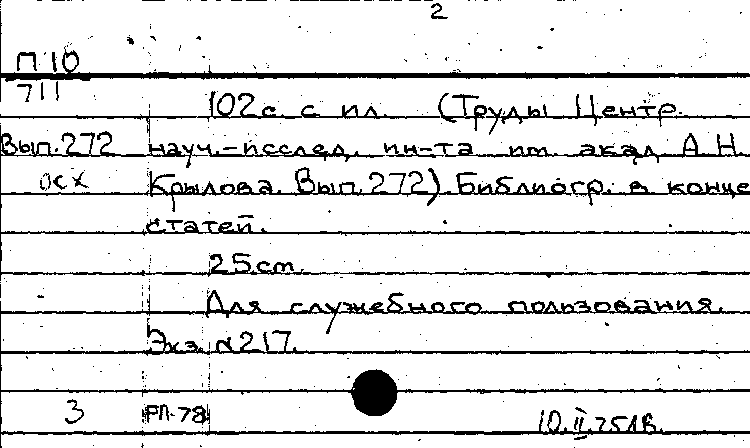 2
П 10
711
102с. с ил. (Труды Центр.
Вып.272 науч.-исслед. ин-та им. акад. А.Н.
осх Крылова. Вып.272). Библиогр. в конце
статей.
25см.
Для служебного пользования.
Экз. №217.
3 РП-78 10.II.75